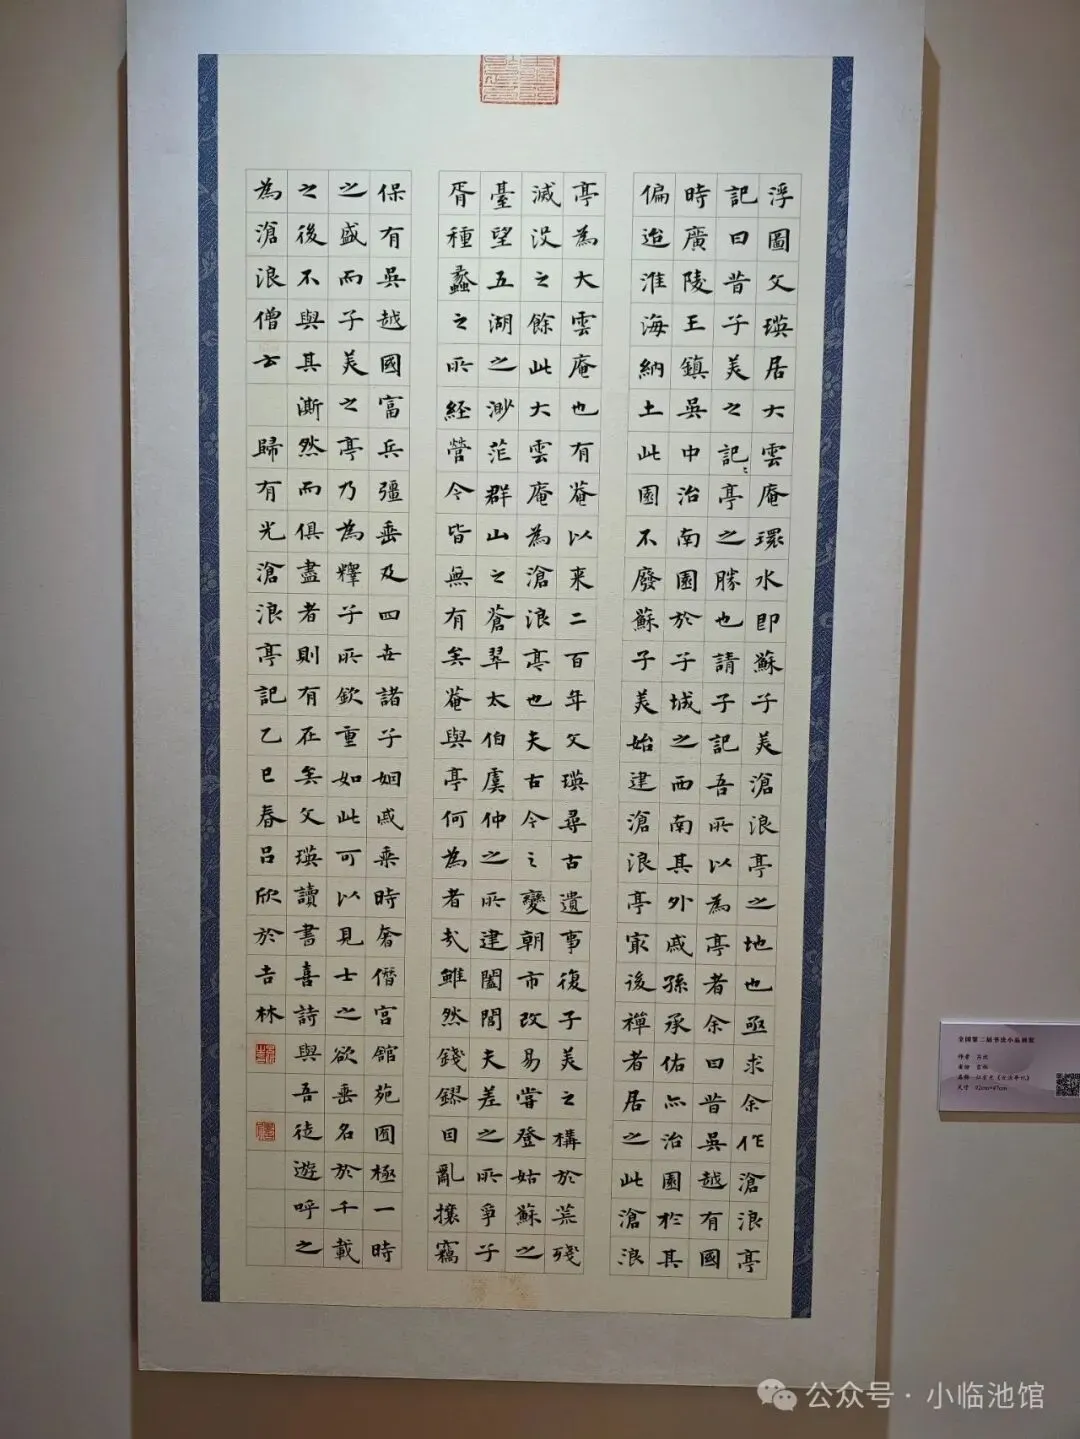 浮圖文瑛居大雲庵環水即蘇子美滄浪亭之地也亟求余作滄浪亭
記曰昔子美之記〻亭之勝也請子記吾所以為亭者余曰昔吳越有國
時廣陵王鎮吳中治南園於子城之西南其外戚孫承佑亦治園於其
偏迨淮海納土此園不廢蘇子美始建滄浪亭冣後禪者居之此滄浪
亭為大雲庵也有菴以来二百年文瑛尋古遺事復子美之構於荒殘
滅没之餘此大雲庵為滄浪亭也夫古今之變朝市改易嘗登姑蘇之
臺望五湖之渺茫群山之蒼翠太伯虞仲之所建闔閭夫差之所爭子
胥種蠡之所經營今皆無有矣菴與亭何為者哉雖然錢鏐因亂攘竊
保有吳越國富兵彊垂及四世諸子姻戚乘時奢僭宮館苑囿極一時
之盛而子美之亭乃為釋子所欽重如此可以見士之欲垂名於千載
之後不與其澌然而俱盡者則有在矣文瑛讀書喜詩與吾徒遊呼之
為滄浪僧云 歸有光滄浪亭記乙巳春呂欣於吉林
全国第二届书法小品展览
作者 吕欣
省份 吉林
尺寸
公众号·小临池馆